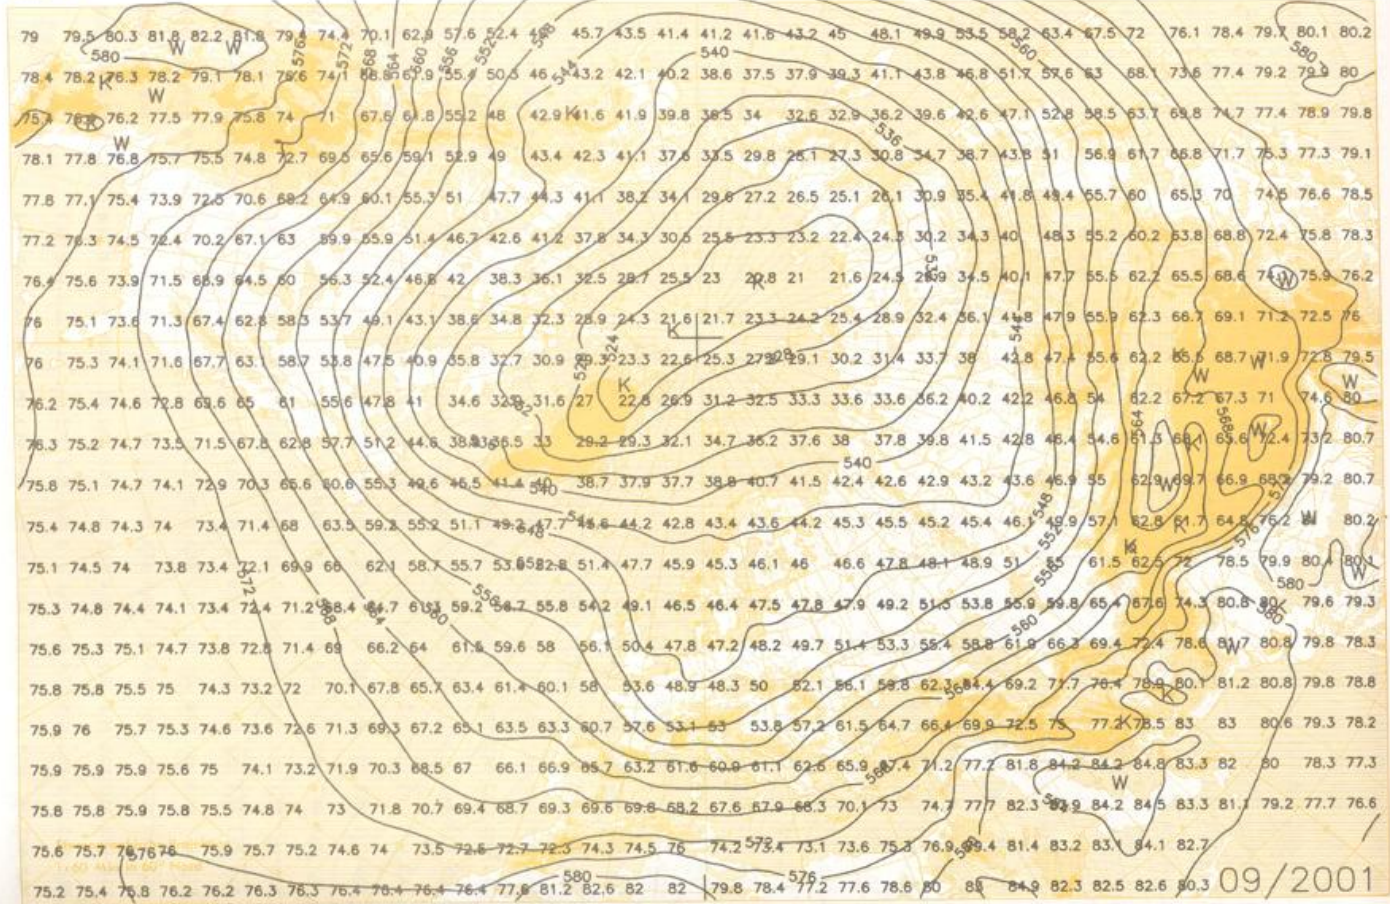 79 79.5 80.3 81.8 82.2 81.8 79.4 74.4 70.1 62.9 57.6 52.4 45.7 43.5 41.4 41.2 41.6 43.2 45 48.1 49.9 53.5 58.2 63.4 67.5 72 76.1 78.4 79.7 80.1 80.2
W W 576 572 568 564 560 556 552 548 560
580 544 540 580
78.4 78.2 76.3 78.2 79.1 78.1 76.6 74.1 68.8 61.9 55.4 50.3 46 43.2 42.1 40.2 38.6 37.5 37.9 39.3 41.1 43.8 46.8 51.7 57.6 63 68.1 73.6 77.4 79.2 79.9 80
K W
75.4 76.2 77.5 77.9 75.8 74 71 67.6 61.8 55.2 48 42.9 41.6 41.9 39.8 36.5 34 32.6 32.9 36.2 39.6 42.6 47.1 52.8 58.5 63.7 69.8 74.7 77.4 78.9 79.8
K K
W 536
78.1 77.8 76.8 75.7 75.5 74.8 72.7 69.5 65.6 59.1 52.9 49 43.4 42.3 41.1 37.6 33.5 29.8 28.1 27.3 30.8 34.7 38.7 43.8 51 56.9 61.7 66.8 71.7 75.3 77.3 79.1
77.8 77.1 75.4 73.9 72.5 70.6 68.2 64.9 60.1 55.3 51 47.7 44.3 41.1 38.2 34.1 29.6 27.2 26.5 25.1 26.1 30.9 35.4 41.8 49.4 55.7 60 65.3 70 74.5 76.6 78.5
77.2 76.3 74.5 72.4 70.2 67.1 63 59.9 55.9 51.4 46.7 42.6 41.2 37.8 34.3 30.5 25.5 23.3 23.2 22.4 24.3 30.2 34.3 40 48.3 55.2 60.2 63.8 68.8 72.4 75.8 78.3
76.4 75.6 73.9 71.5 68.9 64.5 60 56.3 52.4 46.8 42 38.3 36.1 32.5 28.7 25.5 23 20.8 21 21.6 24.5 28.9 34.5 40.1 47.7 55.5 62.2 65.5 68.6 75.9 76.2
K W
76 75.1 73.6 71.3 67.4 62.8 58.3 53.7 49.1 43.1 38.6 34.8 32.3 28.9 24.3 21.6 21.7 23.3 24.2 25.4 28.9 32.4 36.1 41.8 47.9 55.9 62.3 66.7 69.1 71.2 72.5 76
K 544
524 528
76 75.3 74.1 71.6 67.7 63.1 58.7 53.8 47.5 40.9 35.8 32.7 30.9 29.3 23.3 22.6 25.3 29.1 30.2 31.4 33.7 38 42.8 47.4 55.6 62.2 65.5 68.7 71.9 72.8 79.5
528 K W
K W W
76.2 75.4 74.6 72.8 69.6 65 61 55.6 47.8 41 34.6 32.9 31.6 27 22.8 26.9 31.2 32.5 33.3 33.6 33.6 36.2 40.2 42.2 46.8 54 62.2 67.2 67.3 71 74.6 80
564 568
76.3 75.2 74.7 73.5 71.5 67.8 62.8 57.7 51.2 44.6 36.5 33 29.2 29.3 32.1 34.7 36.2 37.6 38 37.8 39.8 41.5 42.8 46.4 54.6 61.3 68.1 65.6 72.4 73.2 80.7
K W
540
75.8 75.1 74.7 74.1 72.9 70.3 65.6 60.8 55.3 49.6 45.5 41.4 40 38.7 37.9 37.7 38.8 40.7 41.5 42.4 42.6 42.9 43.2 43.6 46.9 55 62.9 69.7 66.9 68.2 79.2 80.7
540 W 548
75.4 74.8 74.3 74 73.4 71.4 68 63.5 59.2 55.2 51.1 49.2 47.7 45.6 44.2 42.8 43.4 43.6 44.2 45.3 45.5 45.2 45.4 46.1 49.9 57.1 62.8 61.7 64.8 76.2 80.2
K W
548 552 K 576
75.1 74.5 74 73.8 73.4 72.1 69.9 66 62.1 58.7 55.7 53.6 52.8 51.4 47.7 45.9 45.3 46.1 46 46.6 47.8 48.1 48.9 51 55 61.5 62.5 72 78.5 79.9 80.4 80.1
572 556 580 W
75.3 74.8 74.4 74.1 73.4 72.4 71.2 68.4 64.7 61.3 59.2 56.7 55.8 54.2 49.1 46.5 46.4 47.5 47.8 47.9 49.2 51.3 53.8 55.9 59.8 65.4 67.6 74.3 80.8 80 79.6 79.3
568 564 560 K 580
560
75.6 75.3 75.1 74.7 73.8 72.8 71.4 69 66.2 64 61.5 59.6 58 56.1 50.4 47.8 47.2 48.2 49.7 51.4 53.3 55.4 58.8 61.9 66.3 69.4 72.4 78.6 81.7 80.8 79.8 78.3
W
75.8 75.8 75.5 75 74.3 73.2 72 70.1 67.8 65.7 63.4 61.4 60.1 58 53.6 48.9 48.3 50 52.1 56.1 59.8 62.3 64.4 69.2 71.7 76.4 78.9 80.1 81.2 80.8 79.8 78.8
K
75.9 76 75.7 75.3 74.6 73.6 72.6 71.3 69.3 67.2 65.1 63.5 63.3 60.7 57.6 53.1 53 53.8 57.2 61.5 64.7 66.4 69.9 72.5 75 77.2 78.5 83 83 80.6 79.3 78.2
K
75.9 75.9 75.9 75.6 75 74.1 73.2 71.9 70.3 68.5 67 66.1 66.9 65.7 63.2 61.6 60.9 61.1 62.6 65.9 67.4 71.2 77.2 81.8 84.2 84.2 84.8 83.3 82 80 78.3 77.3
568 W
75.8 75.8 75.9 75.8 75.5 74.8 74 73 71.8 70.7 69.4 68.7 69.3 69.6 69.8 68.2 67.6 67.9 68.3 70.1 73 74.7 77.7 82.3 83.9 84.2 84.5 83.3 81.1 79.2 77.7 76.6
572 580
75.6 75.7 76 76 75.9 75.7 75.2 74.6 74 73.5 72.6 72.7 72.3 74.3 74.5 76 74.2 73.4 73.1 73.6 75.3 76.9 79.4 81.4 83.2 83.1 84.1 82.7
576
580 576
75.2 75.4 75.8 76.2 76.2 76.3 76.3 76.4 76.4 76.4 76.4 77.6 81.2 82.6 82 82 79.8 78.4 77.2 77.6 78.6 80 83 84.9 82.3 82.5 82.6 80.3
09/2001